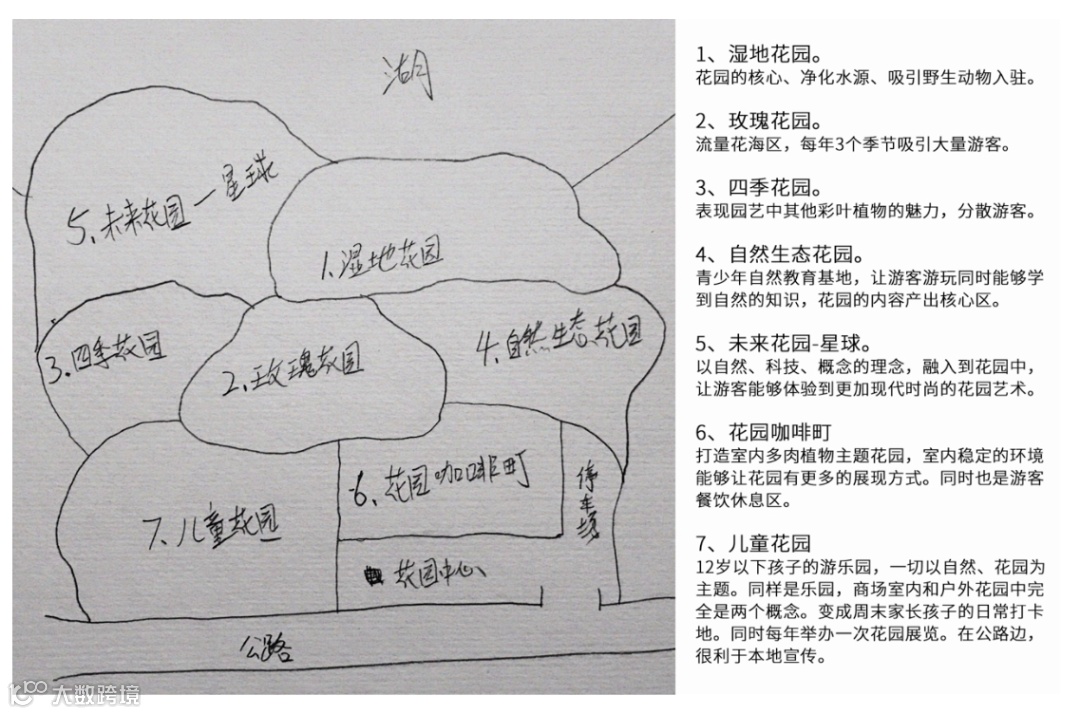 湖
5、未来花园一星球
1、湿地花园
3、四季花园
2、玫瑰花园
4、自然生态花园
7、儿童花园
6、花园咖啡町
停车场
花园中心
公路
1、湿地花园。
花园的核心、净化水源、吸引野生动物入驻。
2、玫瑰花园。
流量花海区，每年3个季节吸引大量游客。
3、四季花园。
表现园艺中其他彩叶植物的魅力，分散游客。
4、自然生态花园。
青少年自然教育基地，让游客游玩同时能够学
到自然的知识，花园的内容产出核心区。
5、未来花园-星球。
以自然、科技、概念的理念，融入到花园中，
让游客能够体验到更加现代时尚的花园艺术。
6、花园咖啡町
打造室内多肉植物主题花园，室内稳定的环境
能够让花园有更多的展现方式。同时也是游客
餐饮休息区。
7、儿童花园
12岁以下孩子的游乐园，一切以自然、花园为
主题。同样是乐园，商场室内和户外花园中完
全是两个概念。变成周末家长孩子的日常打卡
地。同时每年举办一次花园展览。在公路边，
很利于本地宣传。
大数跨境